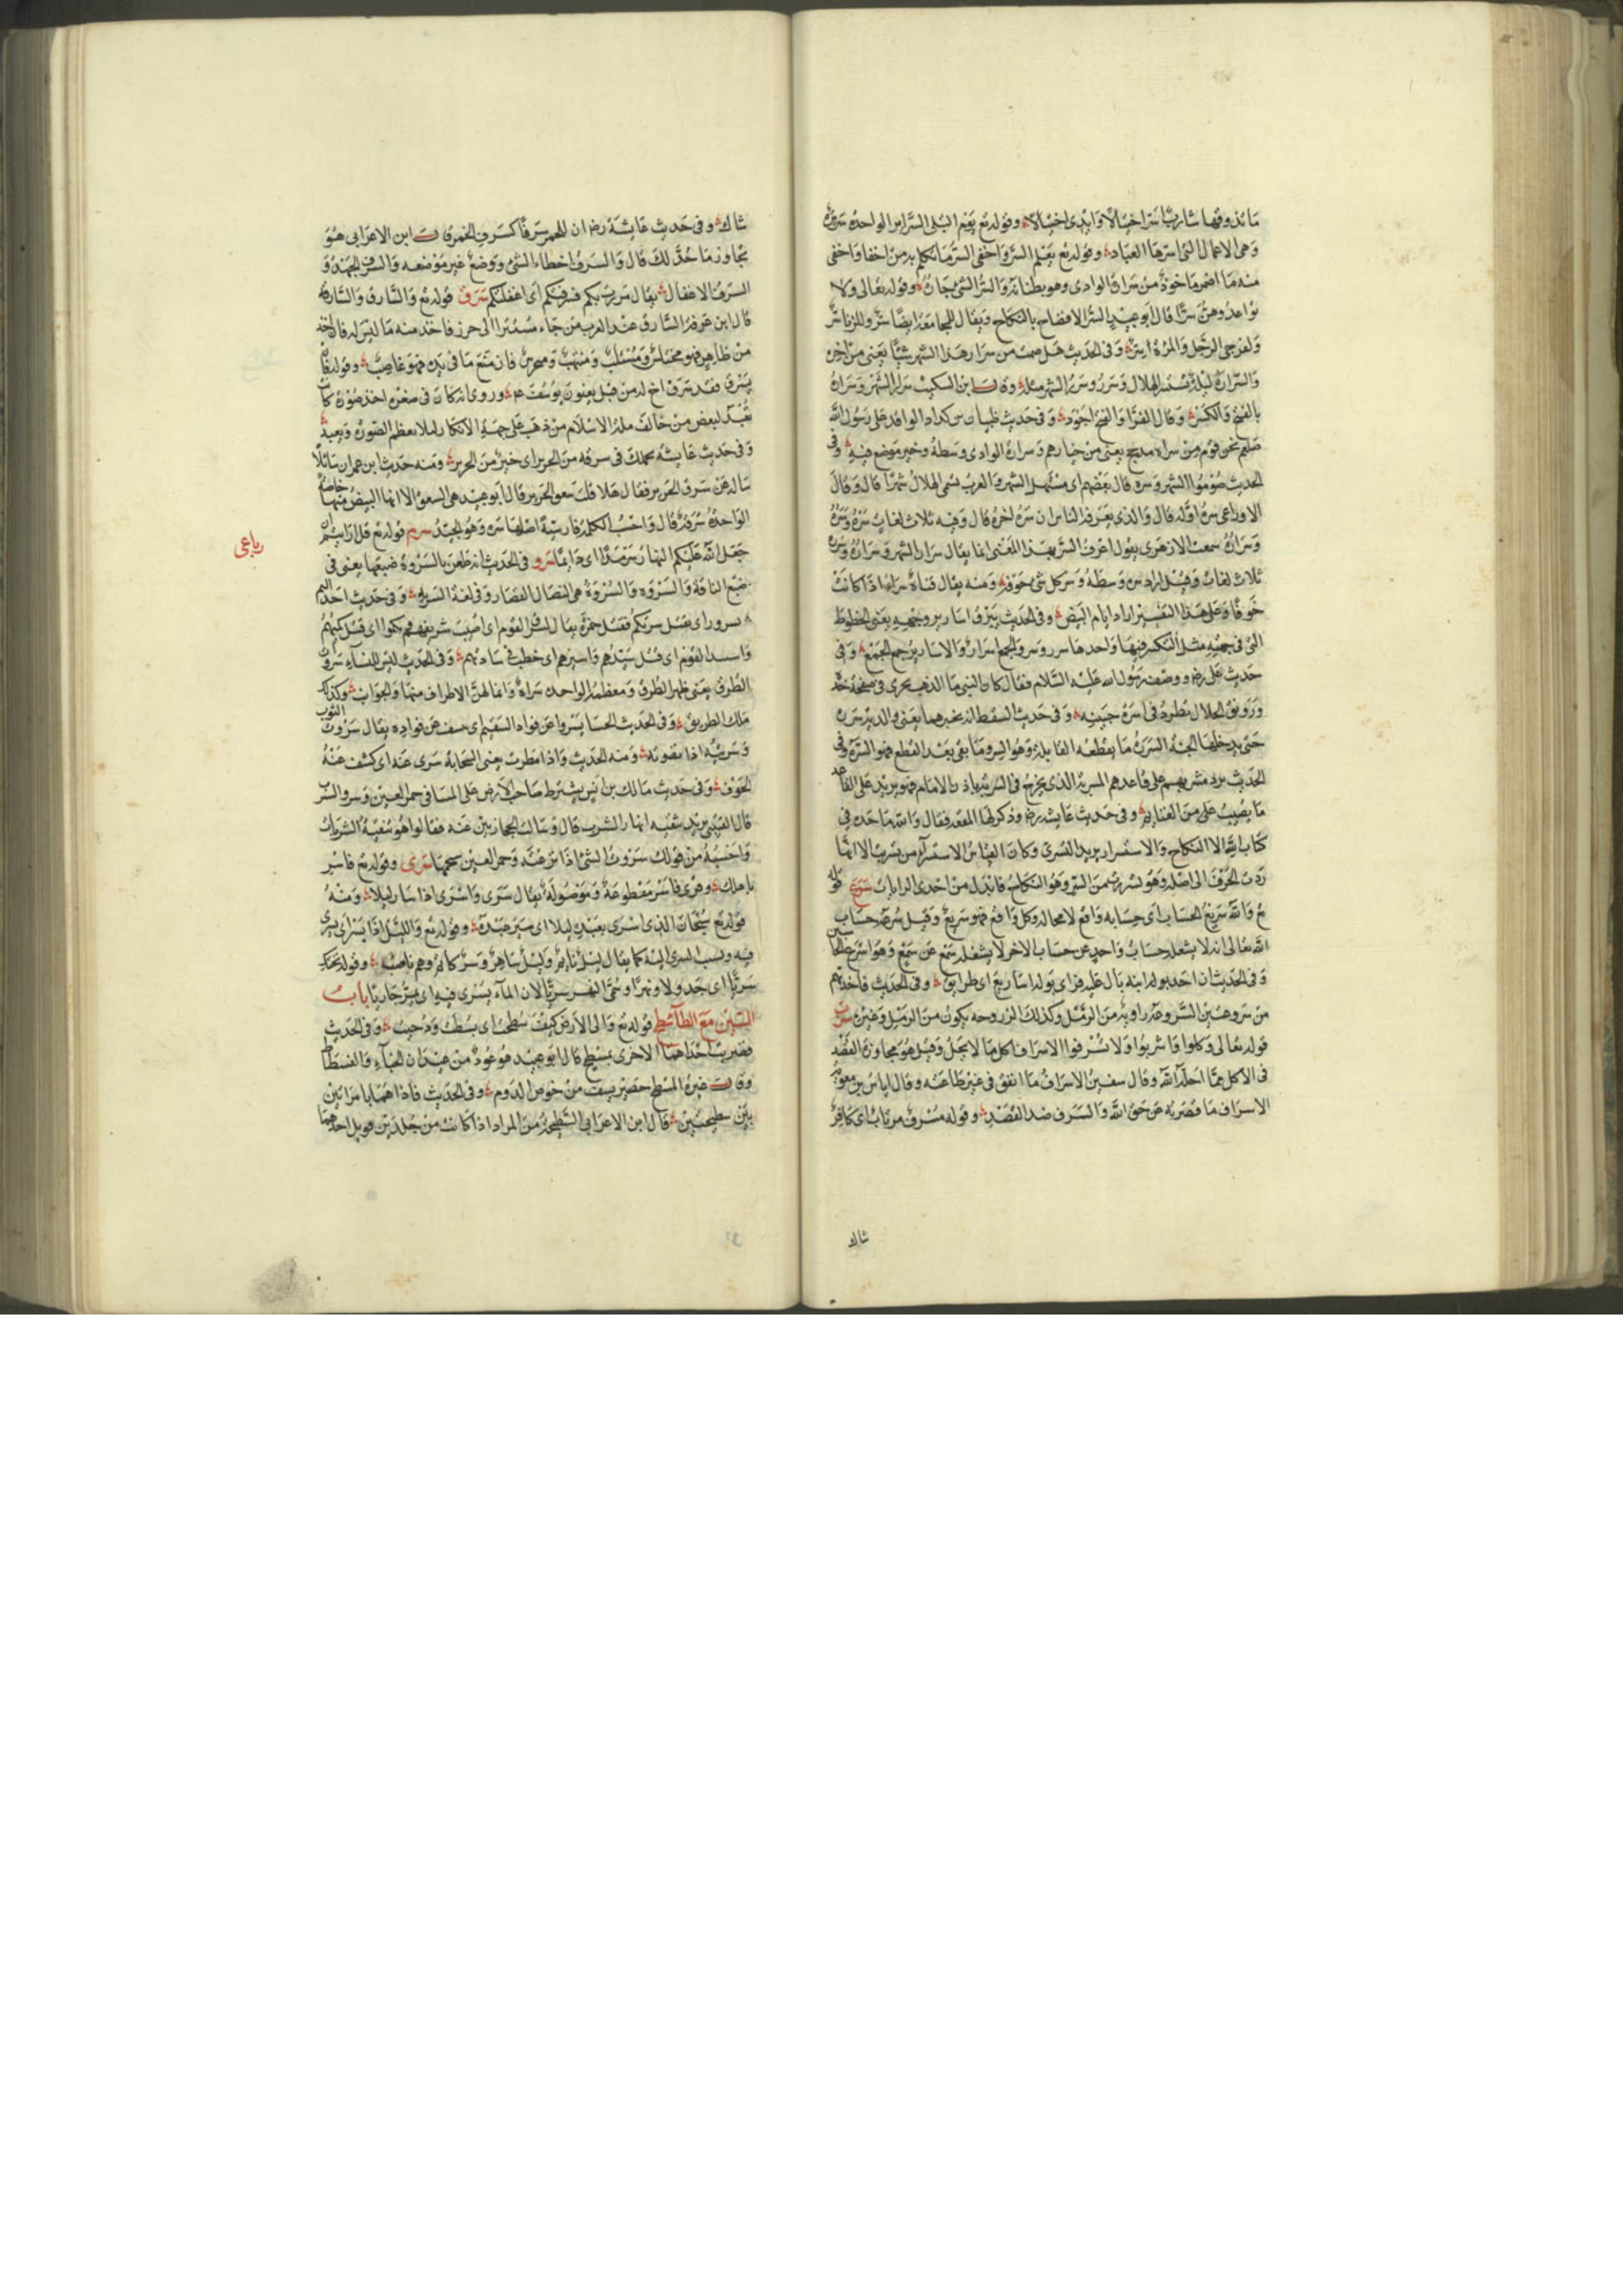 ما تذوقها شاربا سرا خبالا وابدى خبالا وقوله تع يوم تبلى السرائر الواحدة سريرة
وهى الاعمال التى اسرها العباد وقوله تع يعلم السر واخفى السر ما تكلم به من اخفا واخفى
منه ما اضمر ماخوذ من سرار الوادى وهو بطنانه والسر الشئ وقوله تعالى ولا
تواعدوهن سرا قال ابو عبيد السر الافضاح بالنكاح ويقال للمجامعة ايضا سر وللزنا سر
ولفرجى الرجل والمرءة وفى الحديث هل صمت من سرار هذا الشهر شيئا يعنى من اخره
والسرار ليلة يستسر الهلال وسرر وسر الشهر مثله وقال ابن السكيت سرار الشهر وسراره
بالفتح والكسر وقال الفرا والفتح اجود وفى حديث ظبيان الوافد على رسول الله
صلعم نحن قوم من سراة مذحج يعنى من خيارهم وسرارة الوادى وسطه وخير موضع فيه وفى
الحديث صوموا الشهر وسره قال بعضهم اى مستهل الشهر والعرب تسمى الهلال شهرا قال وقال
الاوزاعى سره اوله قال والذى يعرفه الناس ان سره اخره قال وفيه ثلاث لغات سره وسرره
وسراره سمعت الازهرى يقول لا اعرف السر بهذا المعنى انما يقال سرار الشهر وسراره وسرره
ثلاث لغات وقيل اراد سره وسطه وسر كل شئ جوفه ومنه يقال قناة سراء اذا كانت
جوفا وعلى هذا التفسير اراد ايام البيض وفى الحديث تبرق اسارير وجهه يعنى الخطوط
التى فى جبهته مثل التكسر فيها واحدها سرر وسر والجمع اسرار والاسارير جمع الجمع وفى
حديث على رض ووصفه رسول الله عليه السلام فقال كان ما الذهب يجرى فى صفحة خده
ورونق الجلال يطرد فى اسرة جبينه وفى حديث السقط انه يجترهما يعنى والديه بسرره
حتى يدخلهما الجنة السرر ما يقطعه القابلة وهو السر وما بقى بعد القطع فهو السرة وفى
الحديث يرد متسريهم على قاعدهم المتسرى الذى يخرج فى السرية باذن الامام فهو يرد على القاعد
ما يصيب من الغنايم وفى حديث عايشة رض وذكر لها المتعة فقال والله ما نجد فى
كتاب الله الا النكاح والاستسرار يريد التسرى وكان القياس الاستسراء من تسريت الا انها
ردت الحرف الى اصله وهو تسررت من السر وهو النكاح فابدل من احدى الراءات سرع قوله
تع والله سريع الحساب اى حسابه واقع لا محالة وكل واقع فهو سريع وقيل سرعة حساب
الله تعالى انه لا يشغله حساب واحد عن حساب الاخر لا يشغله سمع عن سمع وهو اسرع الحاسبين
وفى الحديث ان احد بوله ابنه بال عليه فراى بوله اساريع اى طرايق وفى الحديث فاخذتهم
من سروعتين السروعة رابية من الرمل وكذلك الزروحة يكون من الرمل وغيره سرف
قوله تعالى وكلوا واشربوا ولا تسرفوا الاسراف اكل ما لا يحل وقيل هو مجاوزة القصد
فى الاكل مما احله الله وقال سفين الاسراف ما انفق فى غير طاعته وقال اياس بن معوية
الاسراف ما قصر به عن حق الله والسرف ضد القصد وقوله مسرف مرتاب اى كافر
شاك
شاك وفى حديث عايشة رض ان للحم سرفا كسرف الخمر وقال ابن الاعرابى هو
تجاوز ما حد لك قال والسرف اخطاء الشئ ووضع غير موضعه والسرف الجهد و
السرف الاغفال يقال مررت بكم فسرفتكم اى اغفلتكم سرق قوله تع والسارق والسارقة
قال ابن عرفة السارق عند العرب من جاء مستترا الى حرز فاخذ منه ما ليس له فان اخذ
من ظاهر فهو مختلس ومستلب ومنتهب ومحترس فان منع ما فى يده فهو غاصب وقوله تع ان
يسرق فقد سرق اخ له من قبل يعنون يوسف عم وروى انه كان فى صغره اخذ صورة كانت
تعبد لبعض من خالف ملة الاسلام من ذهب على جهة الانكار لئلا يعظم الصورة وتعبد
وفى حديث عايشة يحملك فى سرقة من الحرير اى خير من الحرير ومنه حديث ابن عمر ان سائلا
ساله عن سرق الحرير فقال هلا قلت شقق الحرير قال ابو عبيد هى الشقق الا انها البيض منها خاصة
الواحدة سرقة قال واحسب الكلمة فارسية اصلها سره وهو الجيد سرم قوله تع قل ارايتم ان
جعل الله عليكم النهار سرمدا اى دايما سرو فى الحديث انه طعن بالسروة ضبعها يعنى فى
ضبع الناقة والسروة والسروة هى النصال القصار وفى لغة السرية وفى حديث احد اليوم
تسرون اى يقتل سريكم فقتل حمزة يقال القوم اى اصيب شريفهم كموا اى قتل كميهم
واستيد القوم اى قتل سيدهم واسرهم اى خطب فى ساداتهم وفى الحديث ليس للنساء سروات
الطرق يعنى ظهر الطرق ومعظمه الواحدة سراة وانما لهن الاطراف منها والجوانب وكذلك
ملك الطريق وفى الحديث الحسا يسروا عن فواد السقيم اى يكشف عن فواده يقال سروت الثوب
وسريته اذا نضوته ومنه الحديث واذا مطرت يعنى السحابة سرى عنه اى كشف عنه
الخوف وفى حديث مالك بن انس يشترط صاحب الارض على المساقى خم العين وسرو الشرب
قال القتبى يريد تنقية انهار الشرب قال وسالت الحجازيين عنه فقالوا هو تنقية الشربات
واحسبه من قولك سروت الشئ اذا نزعته وخم العين كسحها سرى وقوله تع فاسر
باهلك وقرى فاسر مقطوعة وموصولة يقال سرى واسرى اذا سار ليلا ومنه
قوله تع سبحان الذى اسرى بعبده ليلا اى سير عبده وقوله تع والليل اذا يسر اى يسرى
فيه ونسب السرى اليه كما يقال ليل نايم وليل ساهر وسر كاتم وهم ناصب وقوله تحتك
سريا اى جدولا ونهرا وسمى النهر سريا لان الماء يسرى فيه اى يمر جاريا باب
السين مع الطاء سطح قوله تع والى الارض كيف سطحت اى بسطت ودحيت وفى الحديث
فضربت احداهما الاخرى بمسطح قال ابو عبيد هو عود من عيدان الخباء والفسطاط
وقال غيره المسطح حصير يسف من خوص الدوم وفى الحديث فاذا هما بامراتين
بين سطيحتين قال ابن الاعرابى السطيحة من المزاد اذا كانت من جلدين قوبل احدهما
رباعى